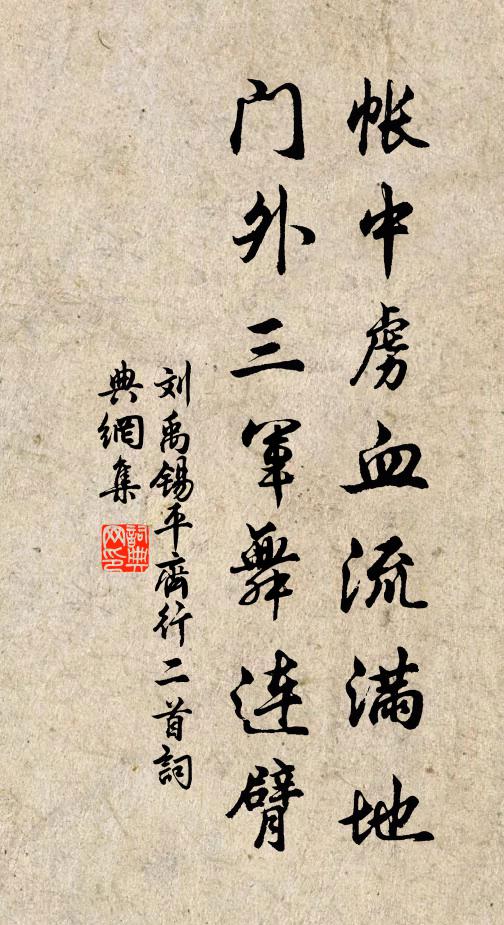 帐中虏血流满地
门外三军舞连臂
刘禹锡平齊行二首詞
典網集
詞典
网印